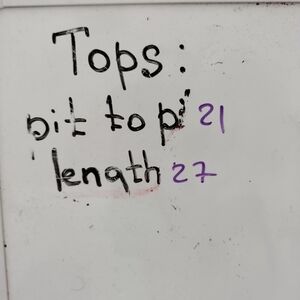 Tops:
pit to pi 21
length 27